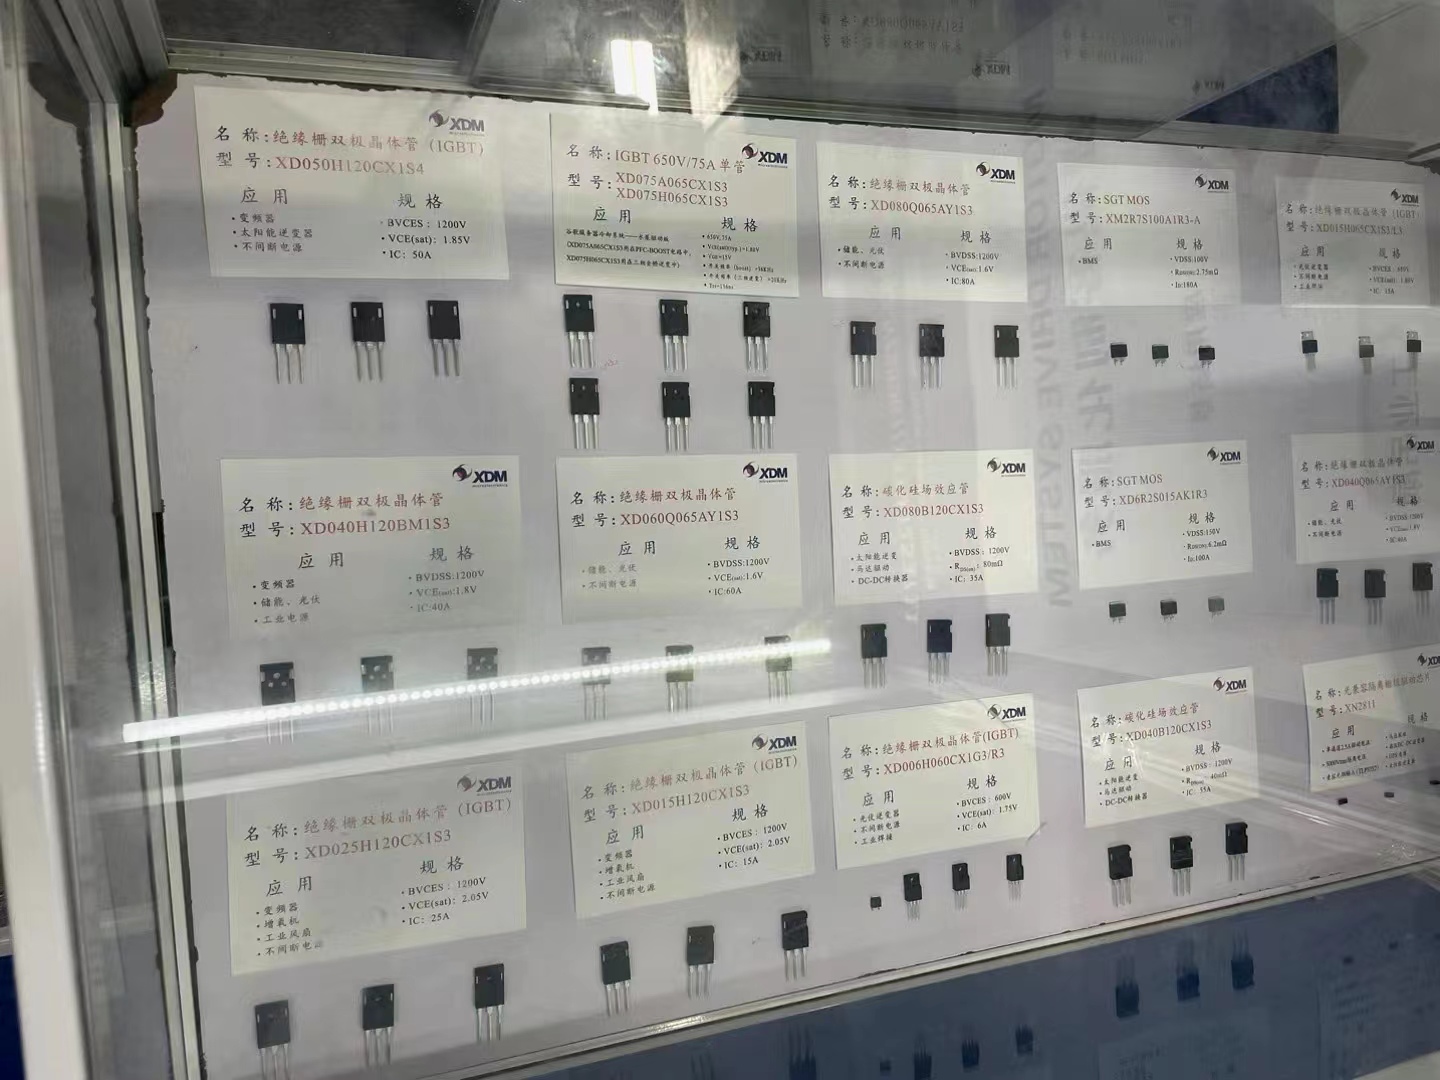 XDM
名 称:绝缘栅双极晶体管 (IGBT)
型 号:XD050H120CX1S4
应 用
• 变频器
• 太阳能逆变器
• 不间断电源
规 格
• BVCES : 1200V
• VCE(sat): 1.85V
• IC: 50A
XDM
名 称:IGBT 650V/75A 单管
型 号:XD075A065CX1S3
XD075H065CX1S3
应 用
规 格
• 650V,75A
XDM
名 称:绝缘栅双极晶体管
型 号:XD080Q065AY1S3
应 用
• 储能、光伏
• 不间断电源
规 格
• BVDSS:1200V
• VCE(sat):1.6V
• IC:80A
XDM
名 称:SGT MOS
型 号:XM2R7S100A1R3-A
应 用
• BMS
规 格
• VDSS:100V
• RDS(ON):2.75mΩ
• ID:180A
XDM
名 称:绝缘栅双极晶体管 (IGBT
型 号:XD015H065CX1S3/L3
应 用
• 光伏逆变器
• 不间断电源
规 格
XDM
名 称:绝缘栅双极晶体管
型 号:XD040H120BM1S3
应 用
• 变频器
• 储能、光伏
• 工业电源
规 格
• BVDSS:1200V
• VCE(sat):1.8V
• IC:40A
XDM
名 称:绝缘栅双极晶体管
型 号:XD060Q065AY1S3
应 用
• 储能、光伏
• 不间断电源
规 格
• BVDSS:1200V
• VCE(sat):1.6V
• IC:60A
XDM
名 称:碳化硅场效应管
型 号:XD080B120CX1S3
应 用
• 太阳能逆变
• 马达驱动
• DC-DC转换器
规 格
• BVDSS: 1200V
• RDS(on): 80mΩ
• IC: 35A
XDM
名 称:SGT MOS
型 号:XD6R2S015AK1R3
应 用
• BMS
规 格
• VDSS:150V
• RDS(ON):6.2mΩ
• ID:100A
XDM
名 称:绝缘栅双极晶体管
型 号:XD040Q065AY1S3
应 用
• 储能、光伏
• 不间断电源
规 格
• BVDSS:1200V
XDM
名 称:绝缘栅双极晶体管 (IGBT)
型 号:XD025H120CX1S3
应 用
• 变频器
• 增氧机
• 工业风扇
• 不间断电源
规 格
• BVCES : 1200V
• VCE(sat): 2.05V
• IC: 25A
XDM
名 称:绝缘栅双极晶体管 (IGBT)
型 号:XD015H120CX1S3
应 用
• 变频器
• 增氧机
• 工业风扇
• 不间断电源
规 格
• BVCES: 1200V
• VCE(sat): 2.05V
• IC: 15A
XDM
名 称:绝缘栅双极晶体管(IGBT)
型 号:XD006H060CX1G3/R3
应 用
• 光伏逆变器
• 不间断电源
• 工业焊接
规 格
• BVCES: 600V
• VCE(sat): 1.75V
• IC: 6A
XDM
名 称:碳化硅场效应管
型 号:XD040B120CX1S3
应 用
• 太阳能逆变
• 马达驱动
• DC-DC转换器
规 格
• BVDSS: 1200V
• RDS(on): 40mΩ
• IC: 55A
名 称:光兼容隔离栅极驱动芯片
型 号:XN2811
应 用
规 格